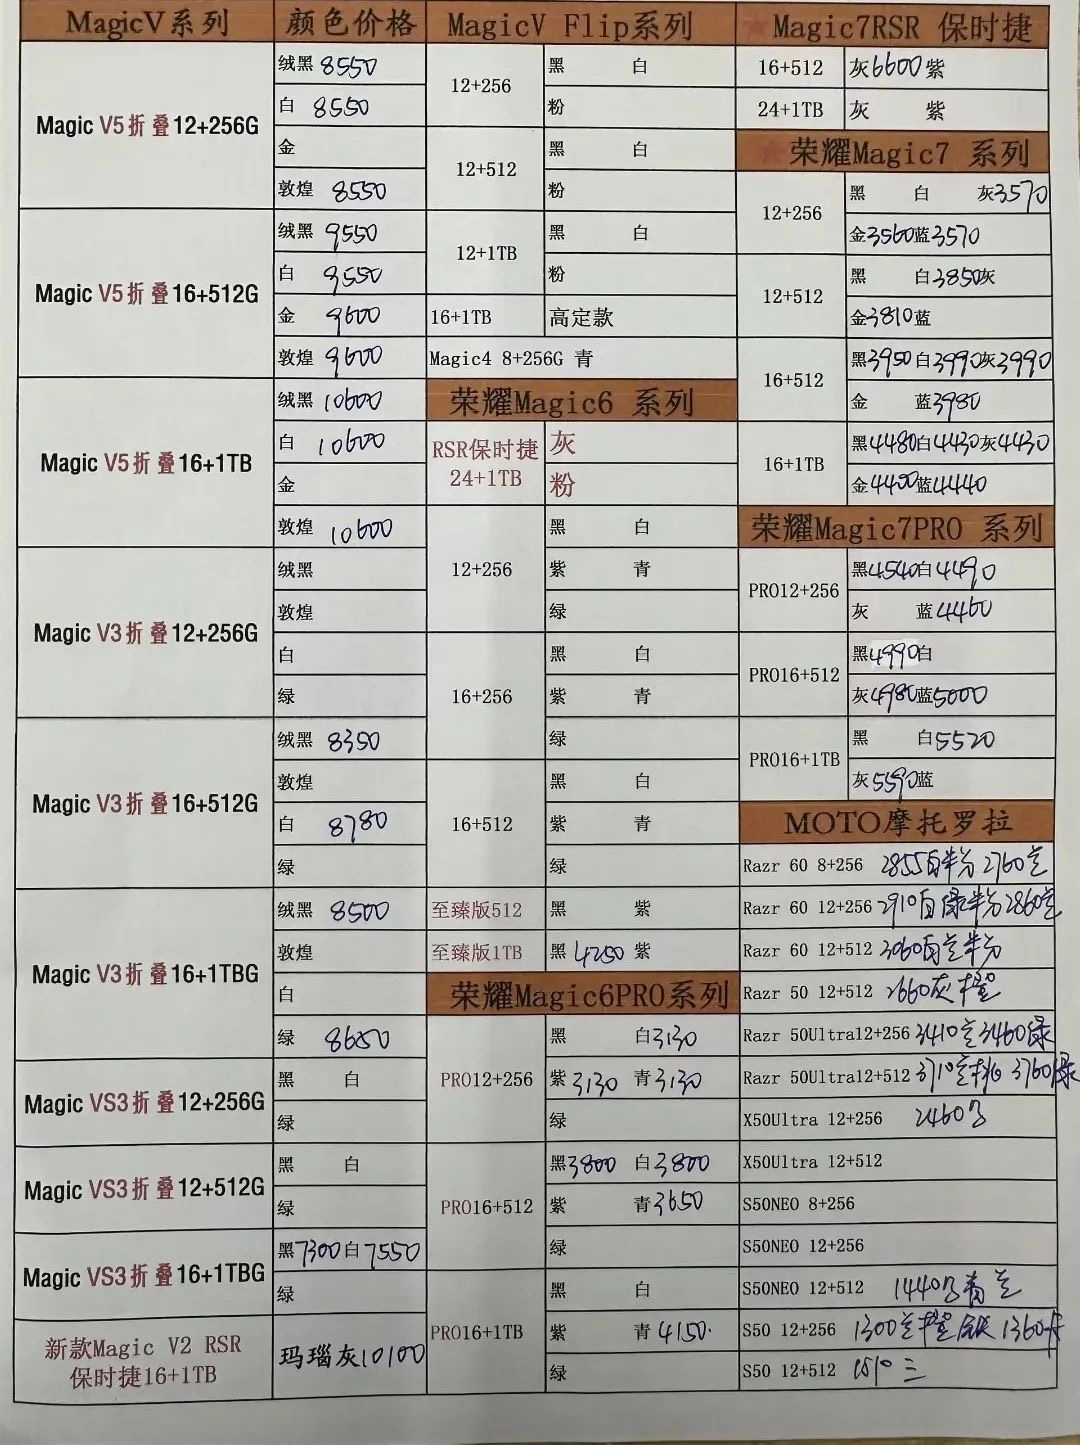 MagicV系列 颜色价格
Magic V5折叠12+256G
绒黑 8550
白 8550
金
敦煌 8550
Magic V5折叠16+512G
绒黑 9550
白 9550
金 9600
敦煌 9600
Magic V5折叠16+1TB
绒黑 10600
白 10600
金
敦煌 10600
Magic V3折叠12+256G
绒黑
敦煌
白
绿
Magic V3折叠16+512G
绒黑 8350
敦煌
白 8780
绿
Magic V3折叠16+1TBG
绒黑 8500
敦煌
白
绿 8650
Magic VS3折叠12+256G
黑 白
绿
Magic VS3折叠12+512G
黑 白
绿
Magic VS3折叠16+1TBG
黑7300白7550
绿
新款Magic V2 RSR
保时捷16+1TB
玛瑙灰10100
MagicV Flip系列
12+256
黑 白
粉
12+512
黑 白
粉
12+1TB
黑 白
粉
16+1TB 高定款
Magic4 8+256G 青
荣耀Magic6 系列
RSR保时捷
24+1TB
灰
粉
12+256
黑 白
紫 青
绿
16+256
黑 白
紫 青
绿
16+512
黑 白
紫 青
绿
至臻版512 黑 紫
至臻版1TB 黑4250 紫
荣耀Magic6PRO系列
PRO12+256
黑 白3130
紫3130 青3130
绿
PRO16+512
黑3800 白3800
紫 青3650
绿
PRO16+1TB
黑 白
紫 青4150
绿
Magic7RSR 保时捷
16+512 灰6600紫
24+1TB 灰 紫
荣耀Magic7 系列
12+256
黑 白 灰3570
金3560蓝3570
12+512
黑 白3850灰
金3810蓝
16+512
黑3950白3990灰3990
金 蓝3980
16+1TB
黑4480白4430灰4430
金4400蓝4440
荣耀Magic7PRO 系列
PRO12+256
黑4540白4490
灰 蓝4460
PRO16+512
黑4990白
灰4980蓝5000
PRO16+1TB
黑 白5520
灰5590蓝
MOTO摩托罗拉
Razr 60 8+256 2855 2760
Razr 60 12+256 2910 2860
Razr 60 12+512 3060
Razr 50 12+512 2660灰橙
Razr 50Ultra12+256 3410 3460绿
Razr 50Ultra12+512 3710 3760绿
X50Ultra 12+256 2460
X50Ultra 12+512
S50NEO 8+256
S50NEO 12+256
S50NEO 12+512 1440 青
S50 12+256 1300 橙 1360
S50 12+512 1510 三